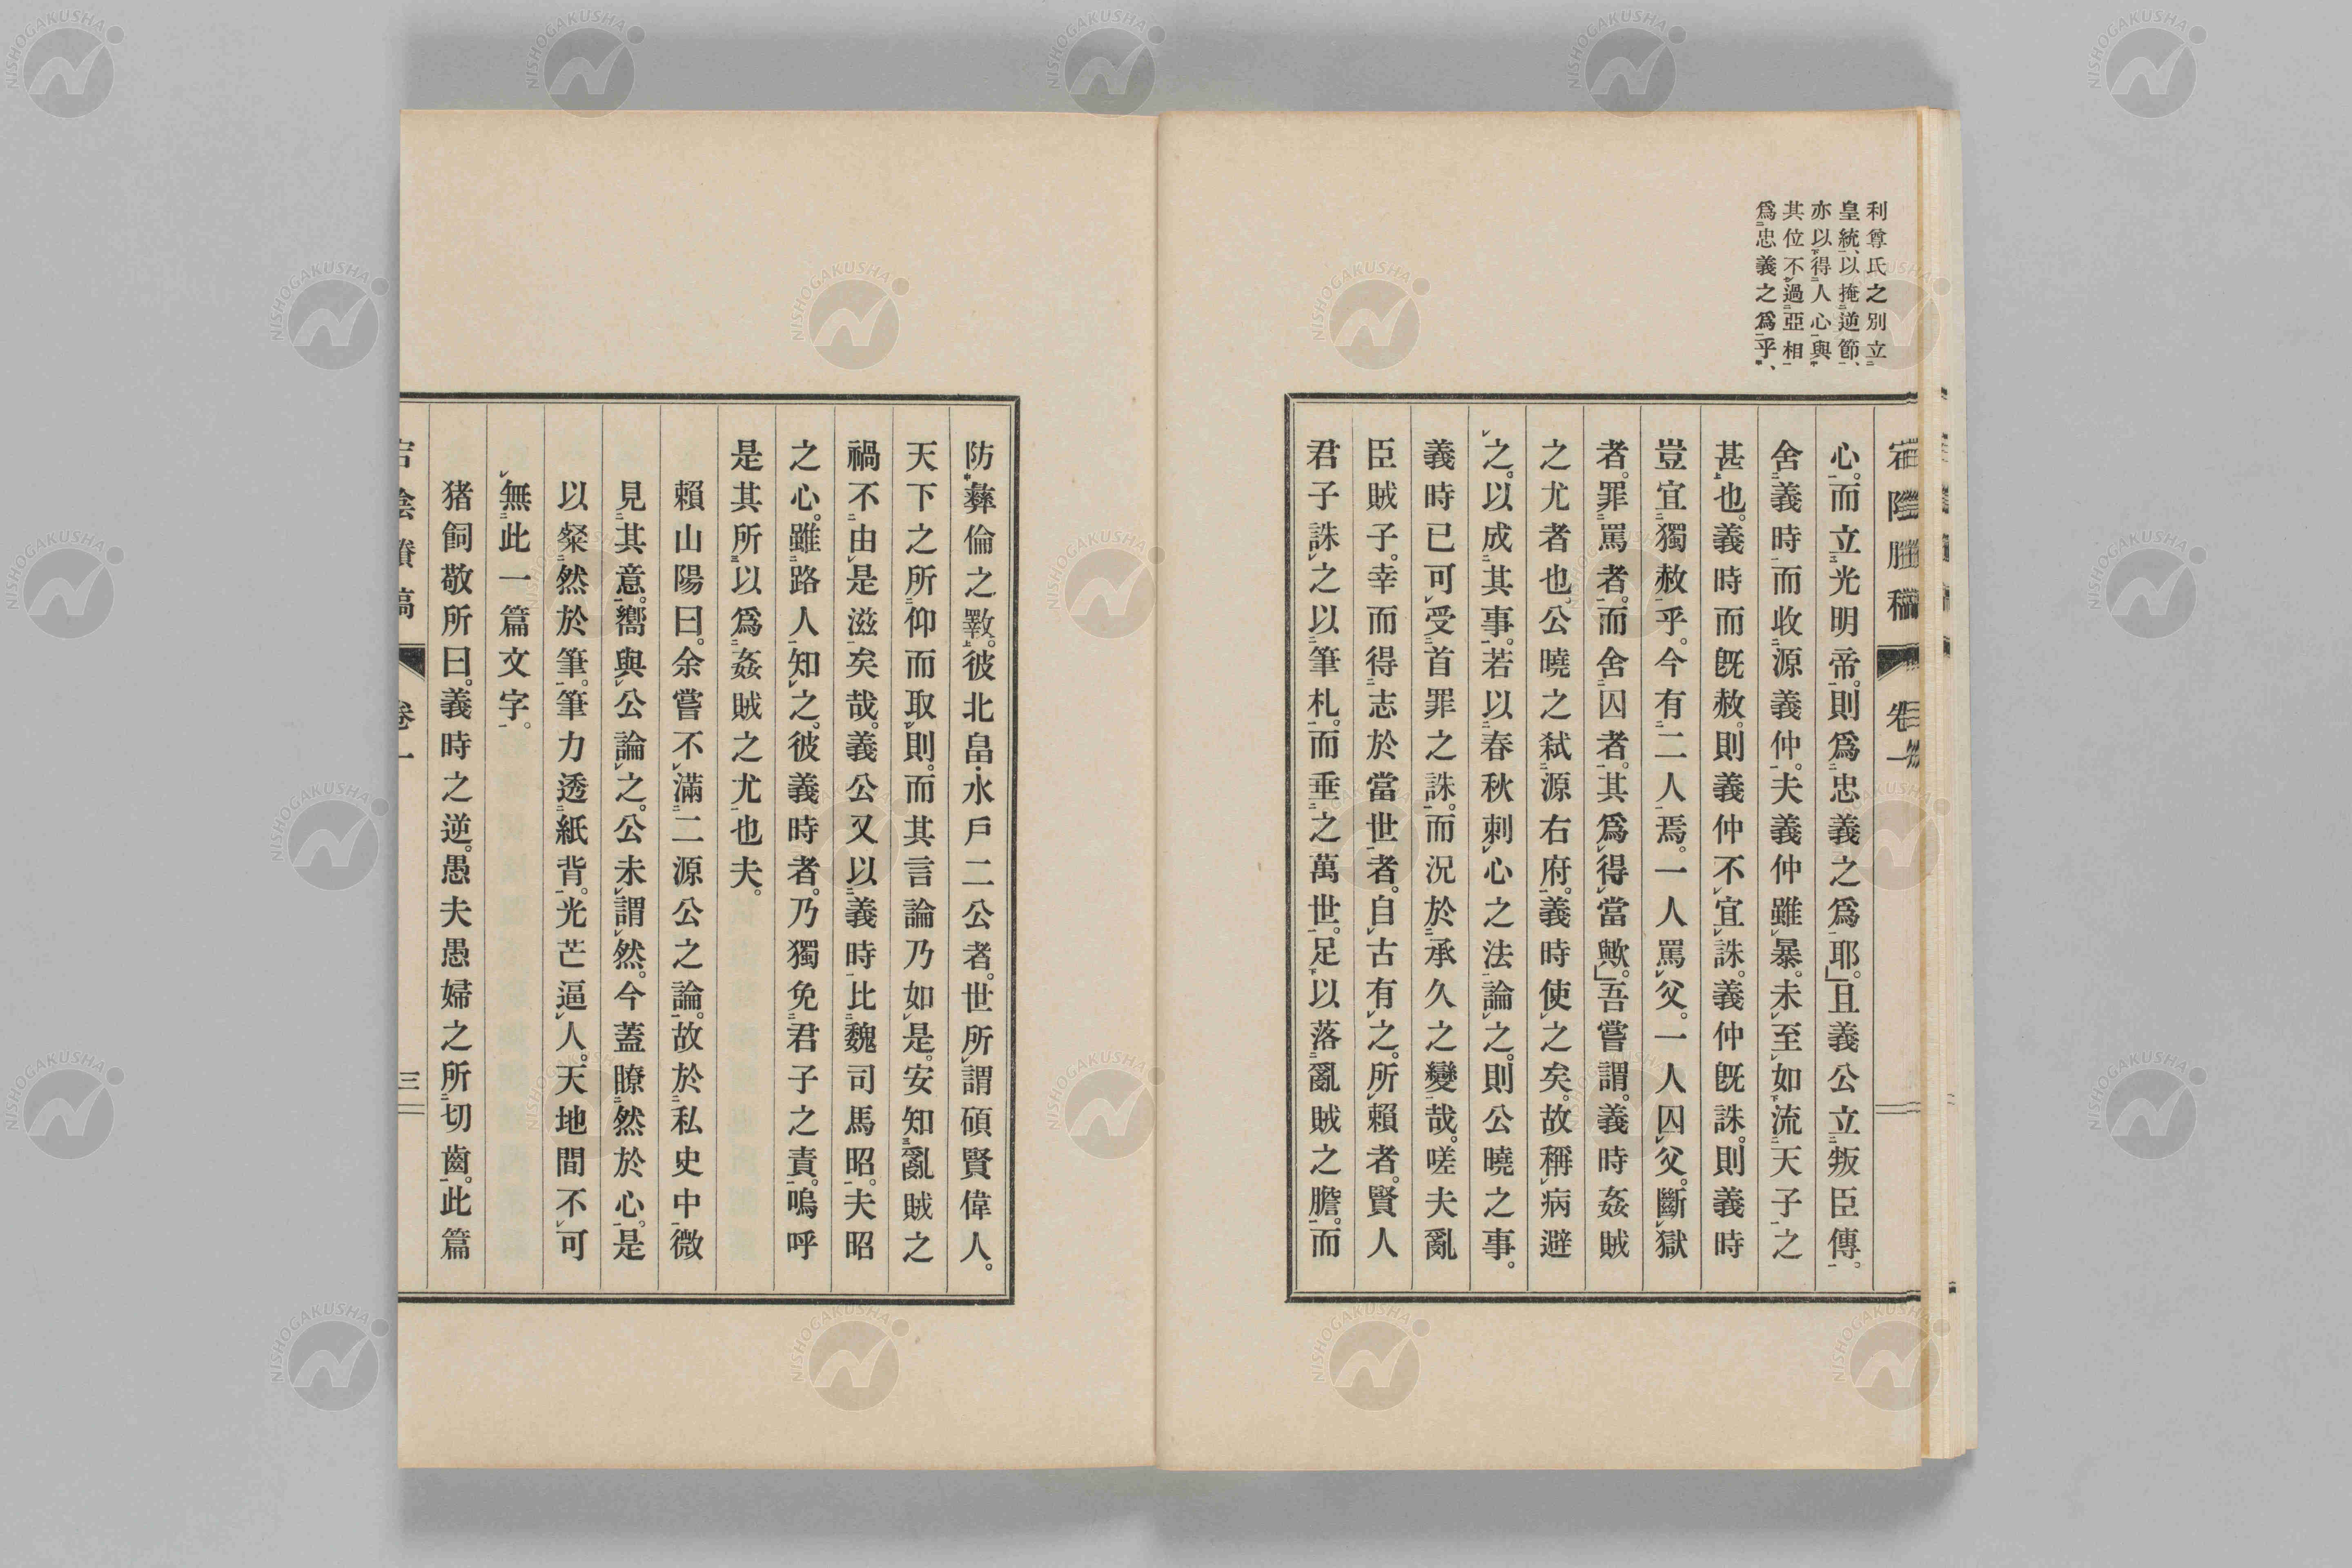 利尊氏之別立
皇統、以掩逆節、
亦以得人心與
其位不過亞相
爲忠義之爲乎、
心。而立光明帝。則爲忠義之爲耶。」且義公立叛臣傳。
舍義時而收源義仲。夫義仲雖暴。未至如流天子之
甚也。義時而既赦。則義仲不宜誅。義仲既誅。則義時
豈宜獨赦乎。今有二人焉。一人罵父。一人囚父。斷獄
者。罪罵者。而舍囚者。其爲得當歟。」吾嘗謂。義時姦賊
之尤者也。公曉之弑源右府。義時使之矣。故稱病避
之。以成其事。若以春秋刺心之法論之。則公曉之事。
義時已可受首罪之誅。而況於承久之變哉。嗟夫亂
臣賊子。幸而得志於當世者。自古有之。所賴者。賢人
君子誅之以筆札。而垂之萬世。足以落亂賊之膽。而
防彝倫之斁。彼北畠・水戶二公者。世所謂碩賢偉人。
天下之所仰而取則。而其言論乃如是。安知亂賊之
禍不由是滋矣哉。義公又以義時比魏司馬昭。夫昭
之心。雖路人知之。彼義時者。乃獨免君子之責。嗚呼
是其所以爲姦賊之尤也夫。
賴山陽曰。余嘗不滿二源公之論。故於私史中微
見其意。嚮與公論之。公未謂然。今蓋瞭然於心。是
以粲然於筆。筆力透紙背。光芒逼人。天地間不可
無此一篇文字。
猪飼敬所曰。義時之逆。愚夫愚婦之所切齒。此篇
卷一
三
NISHOGAKUSHA